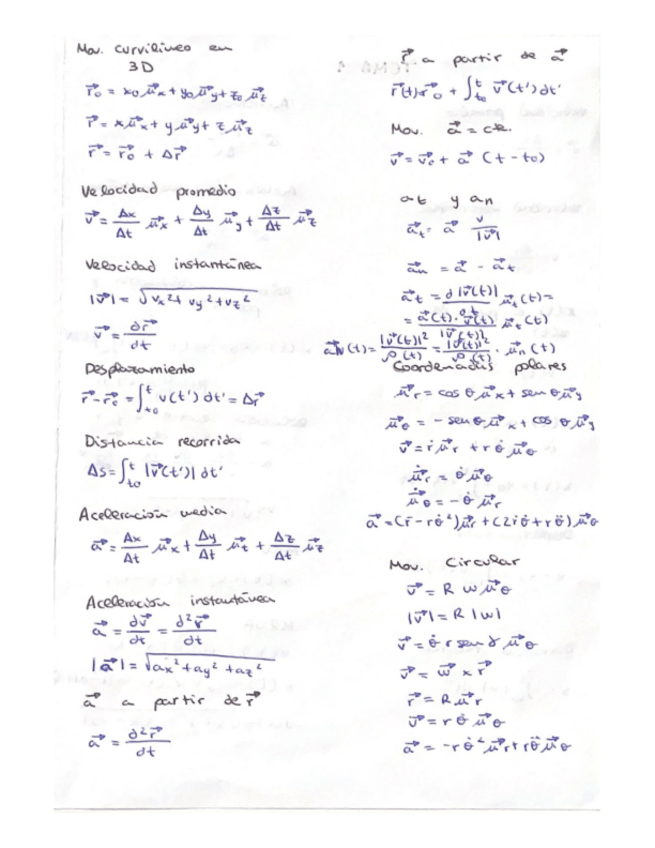 Mov. curvilineo en
3D
r⃗₀ = x₀ μ⃗x + y₀ μ⃗y + z₀ μ⃗z
r⃗ = x μ⃗x + y μ⃗y + z μ⃗z
r⃗ = r⃗₀ + Δr⃗
Velocidad promedio
v⃗ = Δx/Δt μ⃗x + Δy/Δt μ⃗y + Δz/Δt μ⃗z
Velocidad instantánea
|v⃗| = √(vx² + vy² + vz²)
v⃗ = ∂r⃗/dt
Desplazamiento
r⃗ - r⃗₀ = ∫ₜ₀ᵗ v(t') dt' = Δr⃗
Distancia recorrida
Δs = ∫ₜ₀ᵗ |v⃗(t')| dt'
Aceleración media
a⃗ = Δx/Δt μ⃗x + Δy/Δt μ⃗t + Δz/Δt μ⃗z
Aceleración instantánea
a⃗ = dv⃗/dt = d²r⃗/dt
|a⃗| = √(ax² + ay² + az²)
a⃗ a partir de r⃗
a⃗ = ∂²r⃗/dt
r⃗ a partir de a⃗
r⃗(t) = r⃗₀ + ∫ₜ₀ᵗ v⃗(t') dt'
Mov. a⃗ = cte.
v⃗ = v⃗₀ + a⃗ (t - t₀)
at y an
a⃗t = a⃗ v/|v⃗|
a⃗n = a⃗ - a⃗t
a⃗t = ∂|v⃗(t)|/∂t μ⃗t(t) =
= a⃗(t) · v⃗(t)/|v⃗(t)| μ⃗t(t)
a⃗N(t) = |v⃗(t)|²/ρ(t) = |v⃗(t)|²/ρ(t) · μ⃗n(t)
Coordenadas polares
μ⃗r = cos θ μ⃗x + sen θ μ⃗y
μ⃗θ = - sen θ μ⃗x + cos θ μ⃗y
v⃗ = ṙ μ⃗r + r θ̇ μ⃗θ
μ⃗̇r = θ̇ μ⃗θ
μ⃗̇θ = - θ̇ μ⃗r
a⃗ = (r̈ - r θ̇²) μ⃗r + (2ṙθ̇ + r θ̈) μ⃗θ
Mov. Circular
v⃗ = R w μ⃗θ
|v⃗| = R |w|
v⃗ = θ̇ r sen γ μ⃗θ
v⃗ = w⃗ x r⃗
r⃗ = R μ⃗r
v⃗ = r θ̇ μ⃗θ
a⃗ = -r θ̇² μ⃗r + r θ̈ μ⃗θ